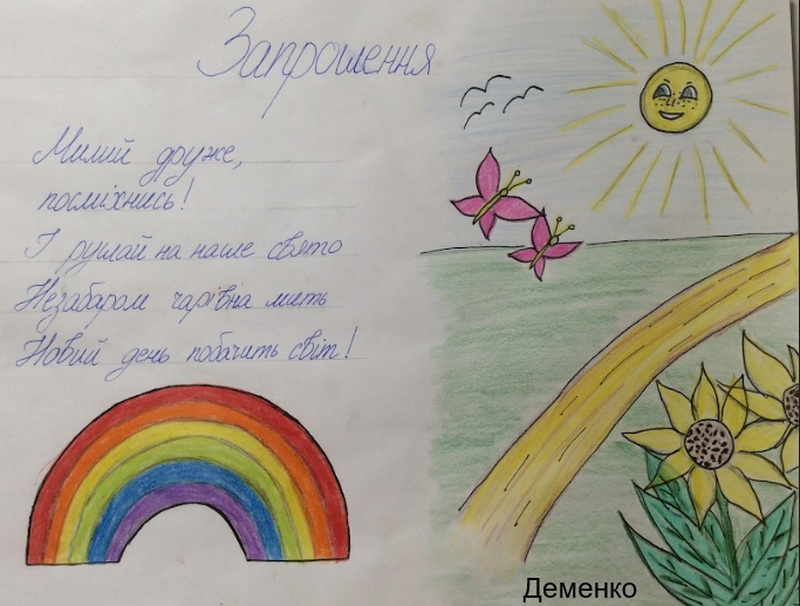 Запрошення
Милий друже,
посміхнись!
І рушай на наше свято
Незабаром чарівна мить
Новий день побачить світ!
Деменко